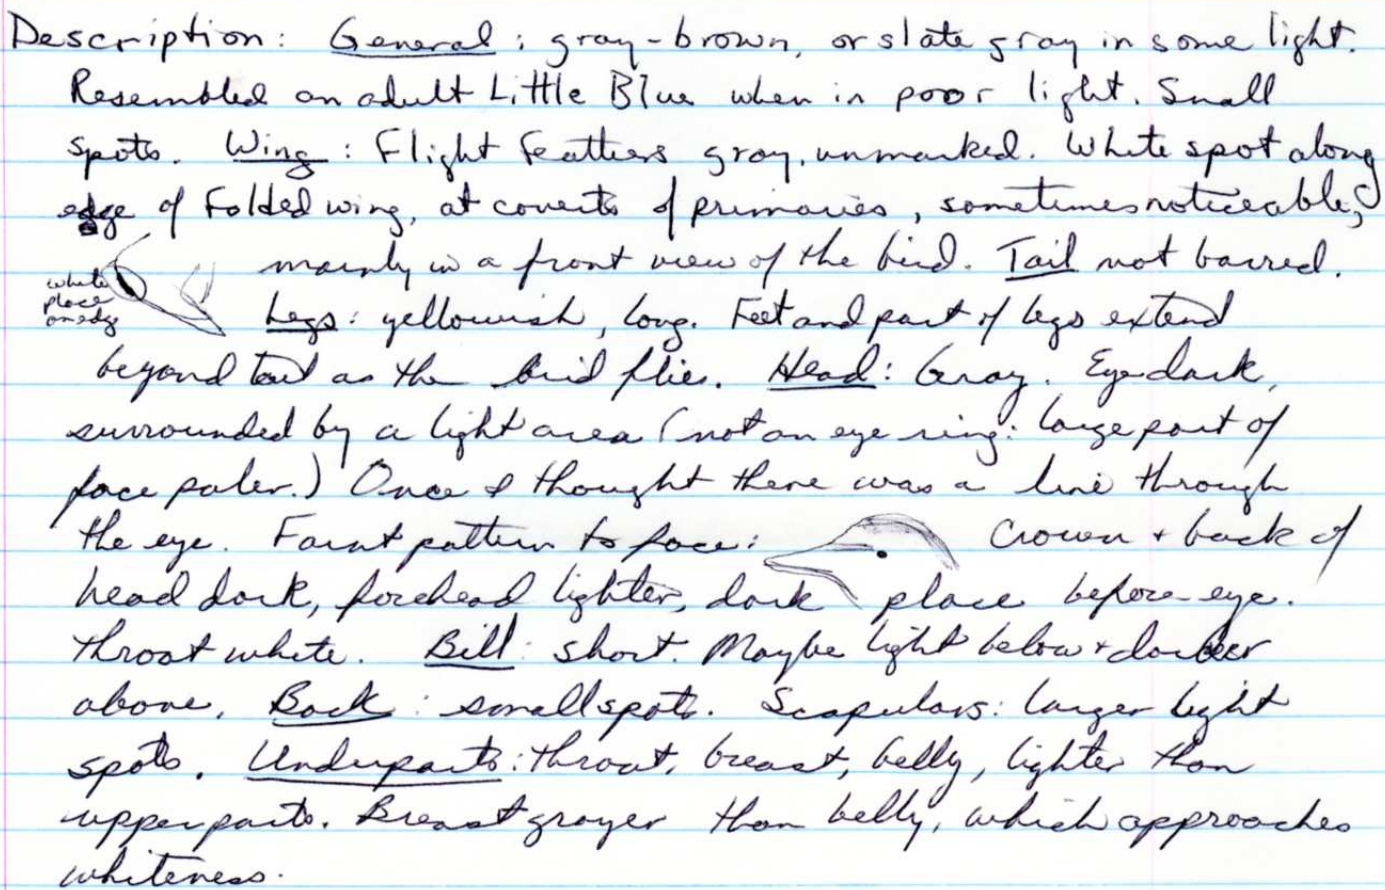 Description: General: gray-brown, or slate gray in some light.
Resembled an adult Little Blue when in poor light. Small
spots. Wing: Flight feathers gray, unmarked. White spot along
edge of folded wing, at coverts of primaries, sometimes noticeable,
mainly in a front view of the bird. Tail not barred.
white
place
on edge
Legs: yellowish, long. Feet and part of legs extend
beyond tail as the bird flies. Head: Gray. Eye dark,
surrounded by a light area (not an eye ring: large part of
face paler.) Once I thought there was a line through
the eye. Faint pattern to face: Crown + back of
head dark, forehead lighter, dark place before eye.
Throat white. Bill: short. Maybe light below + darker
above. Back: small spots. Scapulars: larger light
spots. Underparts: throat, breast, belly, lighter than
upperparts. Breast grayer than belly, which approaches
whiteness.